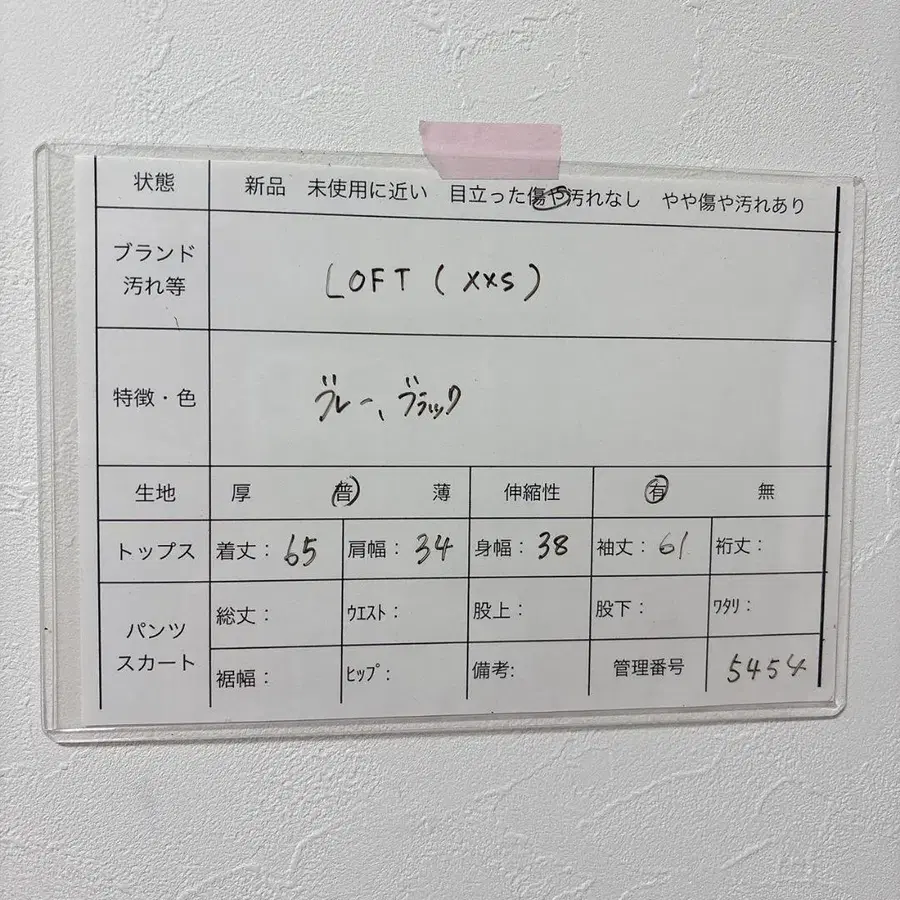 状態 新品 未使用に近い 目立った傷や汚れなし やや傷や汚れあり
ブランド
汚れ等
LOFT (XXS)
特徴・色 グレー、ブラック
生地 厚 普 薄 伸縮性 有 無
トップス 着丈： 65 肩幅： 34 身幅： 38 袖丈： 61 裄丈：
パンツ
スカート
総丈： ｳｴｽﾄ： 股上： 股下： ﾜﾀﾘ：
裾幅： ﾋｯﾌﾟ： 備考: 管理番号 5454